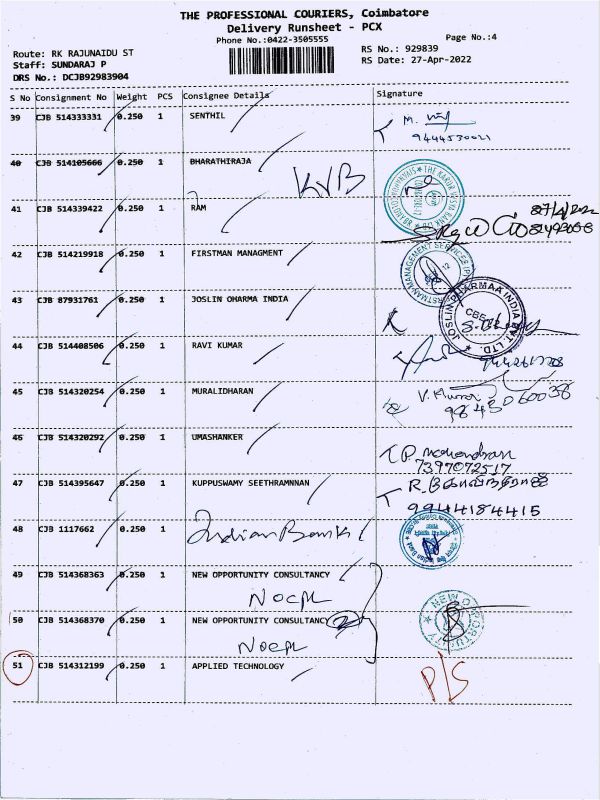 THE PROFESSIONAL COURIERS, Coimbatore
Delivery Runsheet - PCX
Phone No.:0422-3505555
Page No.:4
Route: RK RAJUNAIDU ST
RS No.: 929839
Staff: SUNDARAJ P
RS Date: 27-Apr-2022
DRS No.: DCJB92983904
S No Consignment No Weight PCS Consignee Details Signature
39 CJB 514333331 0.250 1 SENTHIL
M.
9444530021
40 CJB 514105666 0.250 1 BHARATHIRAJA
KVB
41 CJB 514339422 0.250 1 RAM
42 CJB 514219918 0.250 1 FIRSTMAN MANAGMENT
43 CJB 87931761 0.250 1 JOSLIN OHARMA INDIA
JOSLIN PHARMAA INDIA PVT. LTD
CBE
44 CJB 514408506 0.250 1 RAVI KUMAR
45 CJB 514320254 0.250 1 MURALIDHARAN
98430 60038
46 CJB 514320292 0.250 1 UMASHANKER
P. Mohandran
7397072517
47 CJB 514395647 0.250 1 KUPPUSWAMY SEETHRAMNNAN
R.
9944184415
48 CJB 1117662 0.250 1 Indian Bank
49 CJB 514368363 0.250 1 NEW OPPORTUNITY CONSULTANCY
NOCPL
50 CJB 514368370 0.250 1 NEW OPPORTUNITY CONSULTANCY 2
NOCPL
NEW OPPORTUNITY
51 CJB 514312199 0.250 1 APPLIED TECHNOLOGY
P/S